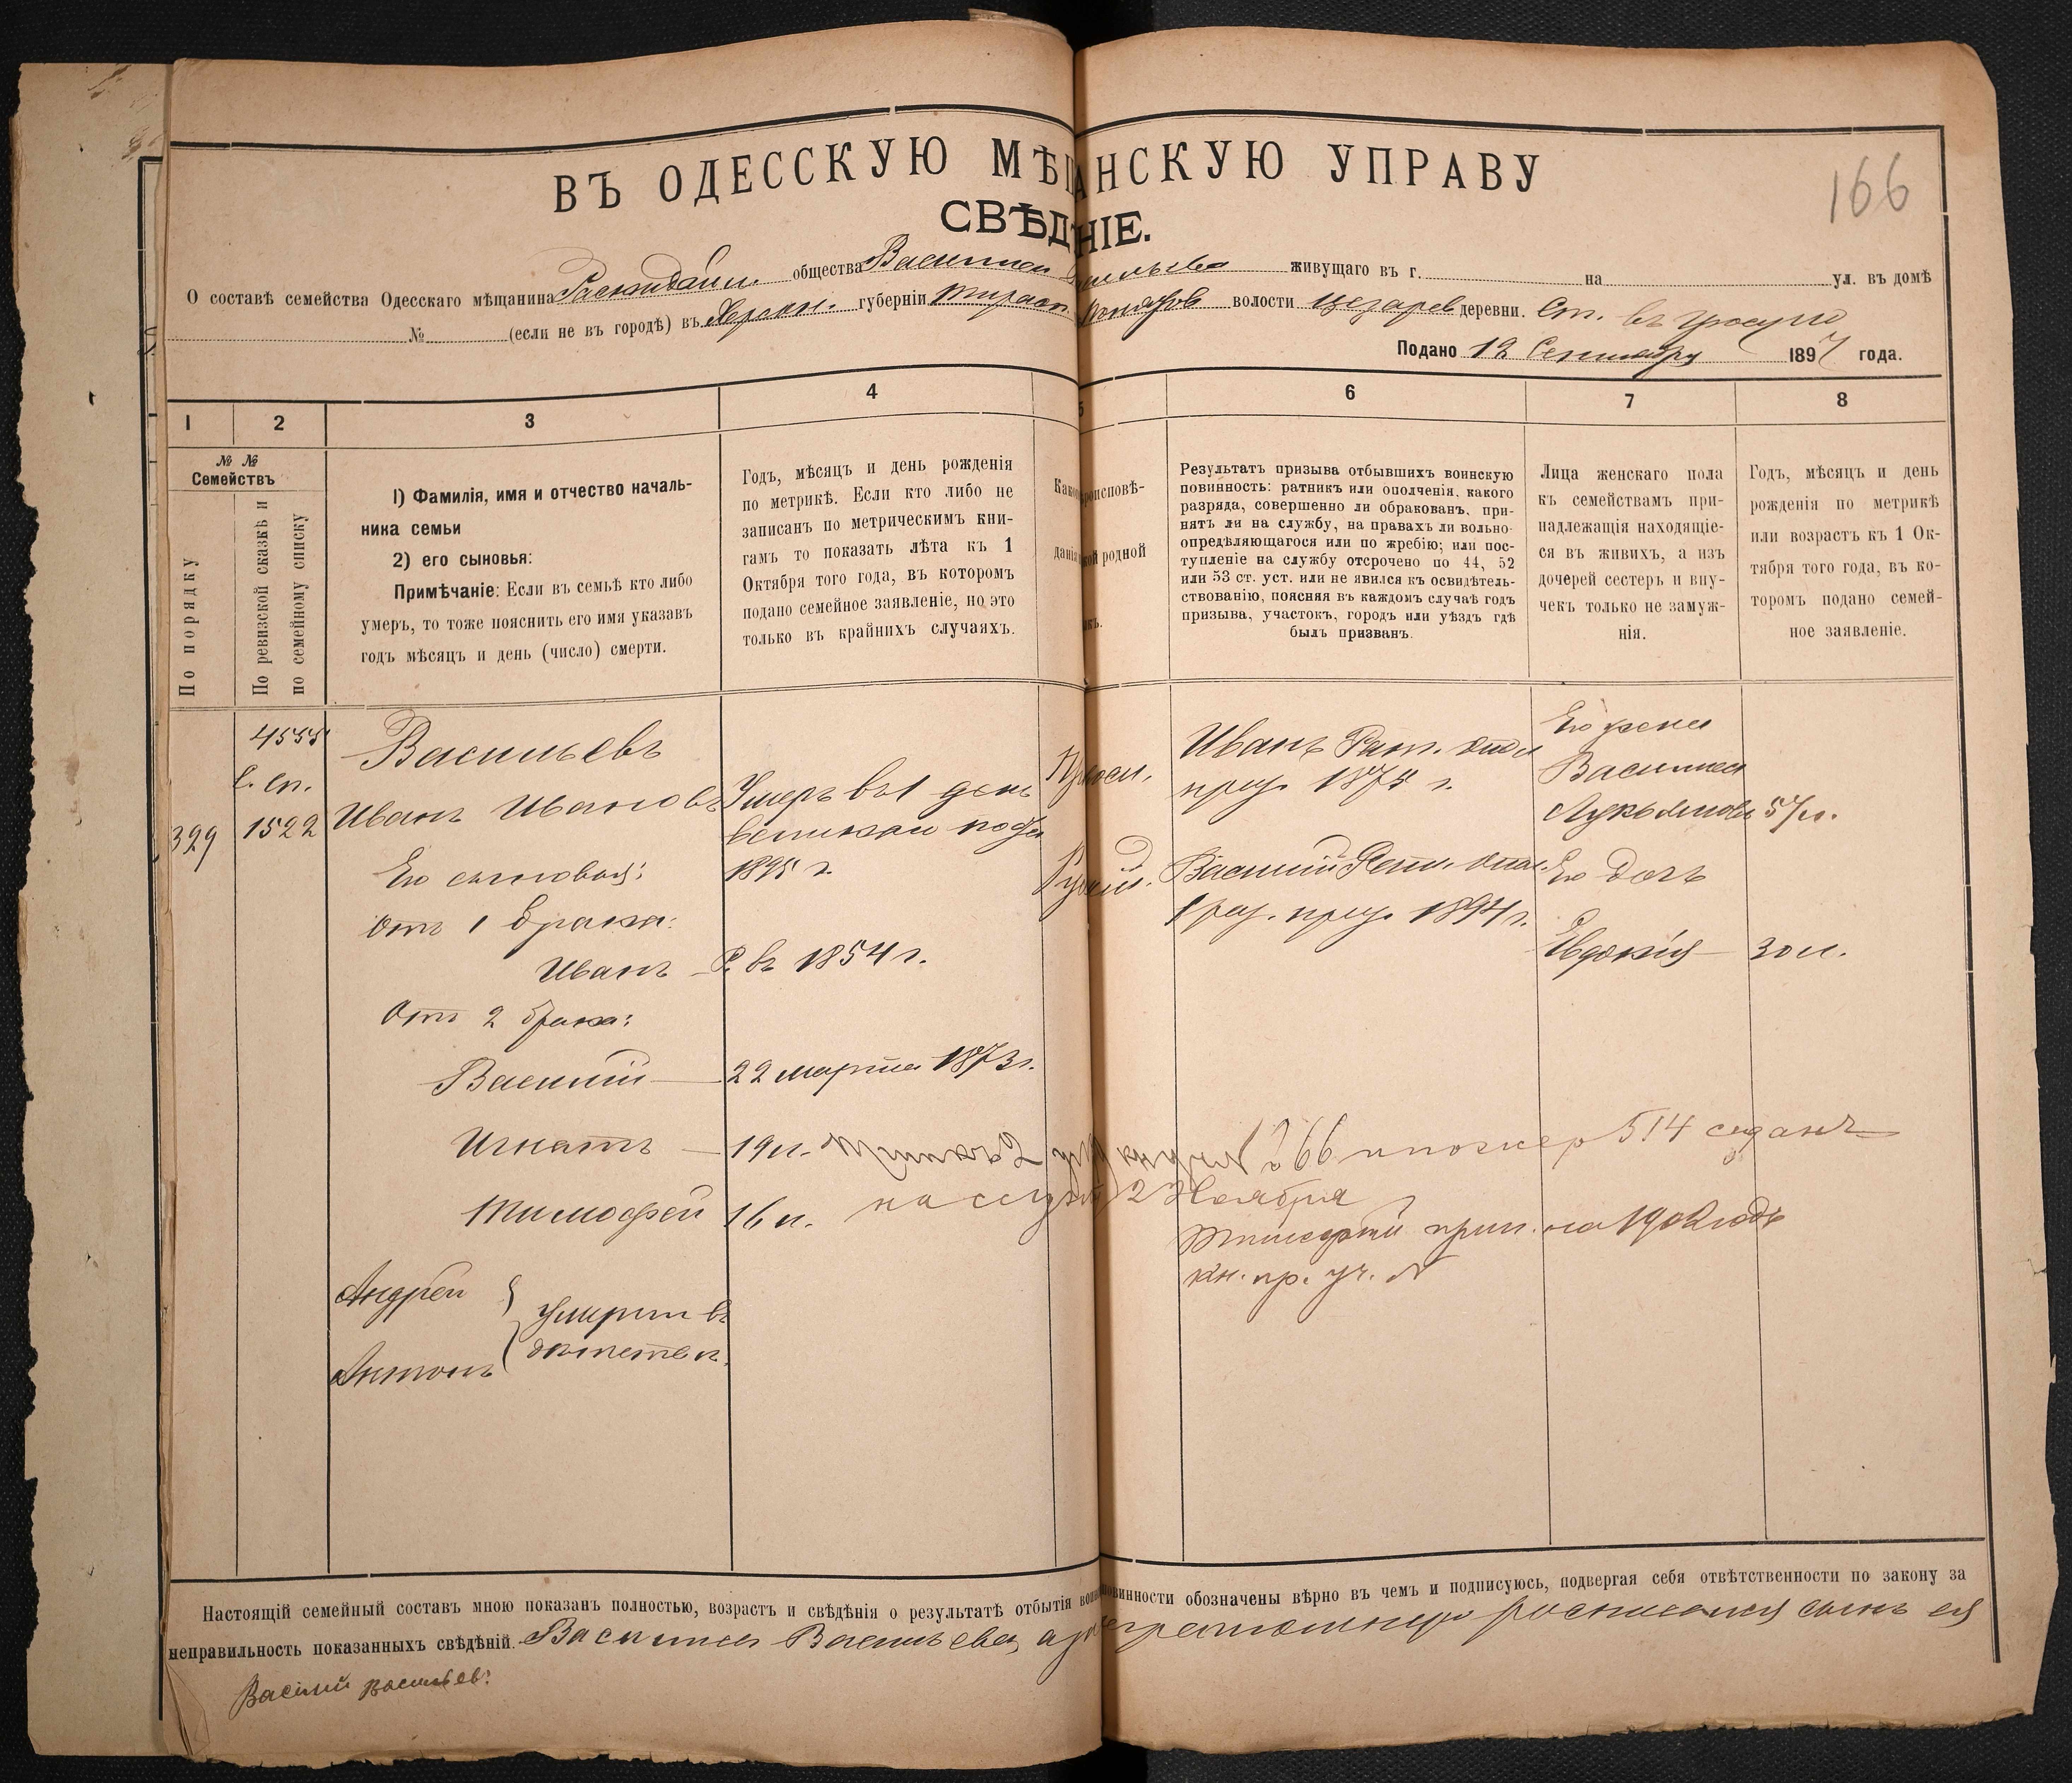 166
ВЪ ОДЕССКУЮ МѢЩАНСКУЮ УПРАВУ
СВѢДѢНІЕ.
О составѣ семейства Одесскаго мѣщанина общества Василиса Васильева живущаго въ г. на ул. въ домѣ
№ (если не въ городѣ) въ Херсон. губерніи Тирасп. волости Цезарев деревни. Ст. въ
Подано 12 Сентября 1897 года.
1 2 3 4 5 6 7 8
№ №
Семействъ
По порядку
По ревизской сказкѣ и
по семейному списку
1) Фамилія, имя и отчество началь-
ника семьи
2) его сыновья:
Примѣчаніе: Если въ семьѣ кто либо
умеръ, то тоже пояснить его имя указавъ
годъ мѣсяцъ и день (число) смерти.
Годъ, мѣсяцъ и день рожденія
по метрикѣ. Если кто либо не
записанъ по метрическимъ кни-
гамъ то показать лѣта къ 1
Октября того года, въ которомъ
подано семейное заявленіе, но это
только въ крайнихъ случаяхъ.
Како роисповѣ-
данія кой родной
къ.
Результатъ призыва отбывшихъ воинскую
повинность: ратникъ или ополченія, какого
разряда, совершенно ли обракованъ, при-
нятъ ли на службу, на правахъ ли вольно-
опредѣляющагося или по жребію; или пос-
тупленіе на службу отсрочено по 44, 52
или 53 ст. уст. или не явился къ освидѣтель-
ствованію, поясняя въ каждомъ случаѣ годъ
призыва, участокъ, городъ или уѣздъ гдѣ
былъ призванъ.
Лица женскаго пола
къ семействамъ при-
надлежащія находящіе-
ся въ живихъ, а изъ
дочерей сестеръ и вну-
чекъ только не замуж-
нія.
Годъ, мѣсяцъ и день
рожденія по метрикѣ
или возрастъ къ 1 Ок-
тября того года, въ ко-
торомъ подано семей-
ное заявленіе.
4555
с. сп.
1522
329
Васильевъ
Иванъ Ивановъ
Его сыновья:
Отъ 1 брака:
Иванъ
Отъ 2 брака:
Василій
Игнатъ
Тимофей
Андрей
Антонъ
умерли въ
дѣтствѣ.
Умеръ въ 1 день
великаго поста
1895 г.
Р. въ 1854 г.
22 марта 1873 г.
19 л.
16 л.
Правосл.
Русскій.
Иванъ Рат. опол
приз. 1875 г.
Василій Рат. опол.
1 раз. приз. 1894 г.
99 г. жер 514 сданъ
на службу 2 Ноября
Тимофей прип. на 1902 годъ
кн. пр. уч. №
Его жена
Василиса
Лукьянова 57 л.
Его дочь
Евдокія — 30 л.
Настоящій семейный составъ мною показанъ полностью, возрастъ и свѣдѣнія о результатѣ отбытія воин повинности обозначены вѣрно въ чемъ и подписуюсь, подвергая себя отвѣтственности по закону за
неправильность показанныхъ свѣдѣній. Василиса Васильева, а неграмотную росписался сынъ ея
Василій Васильев: